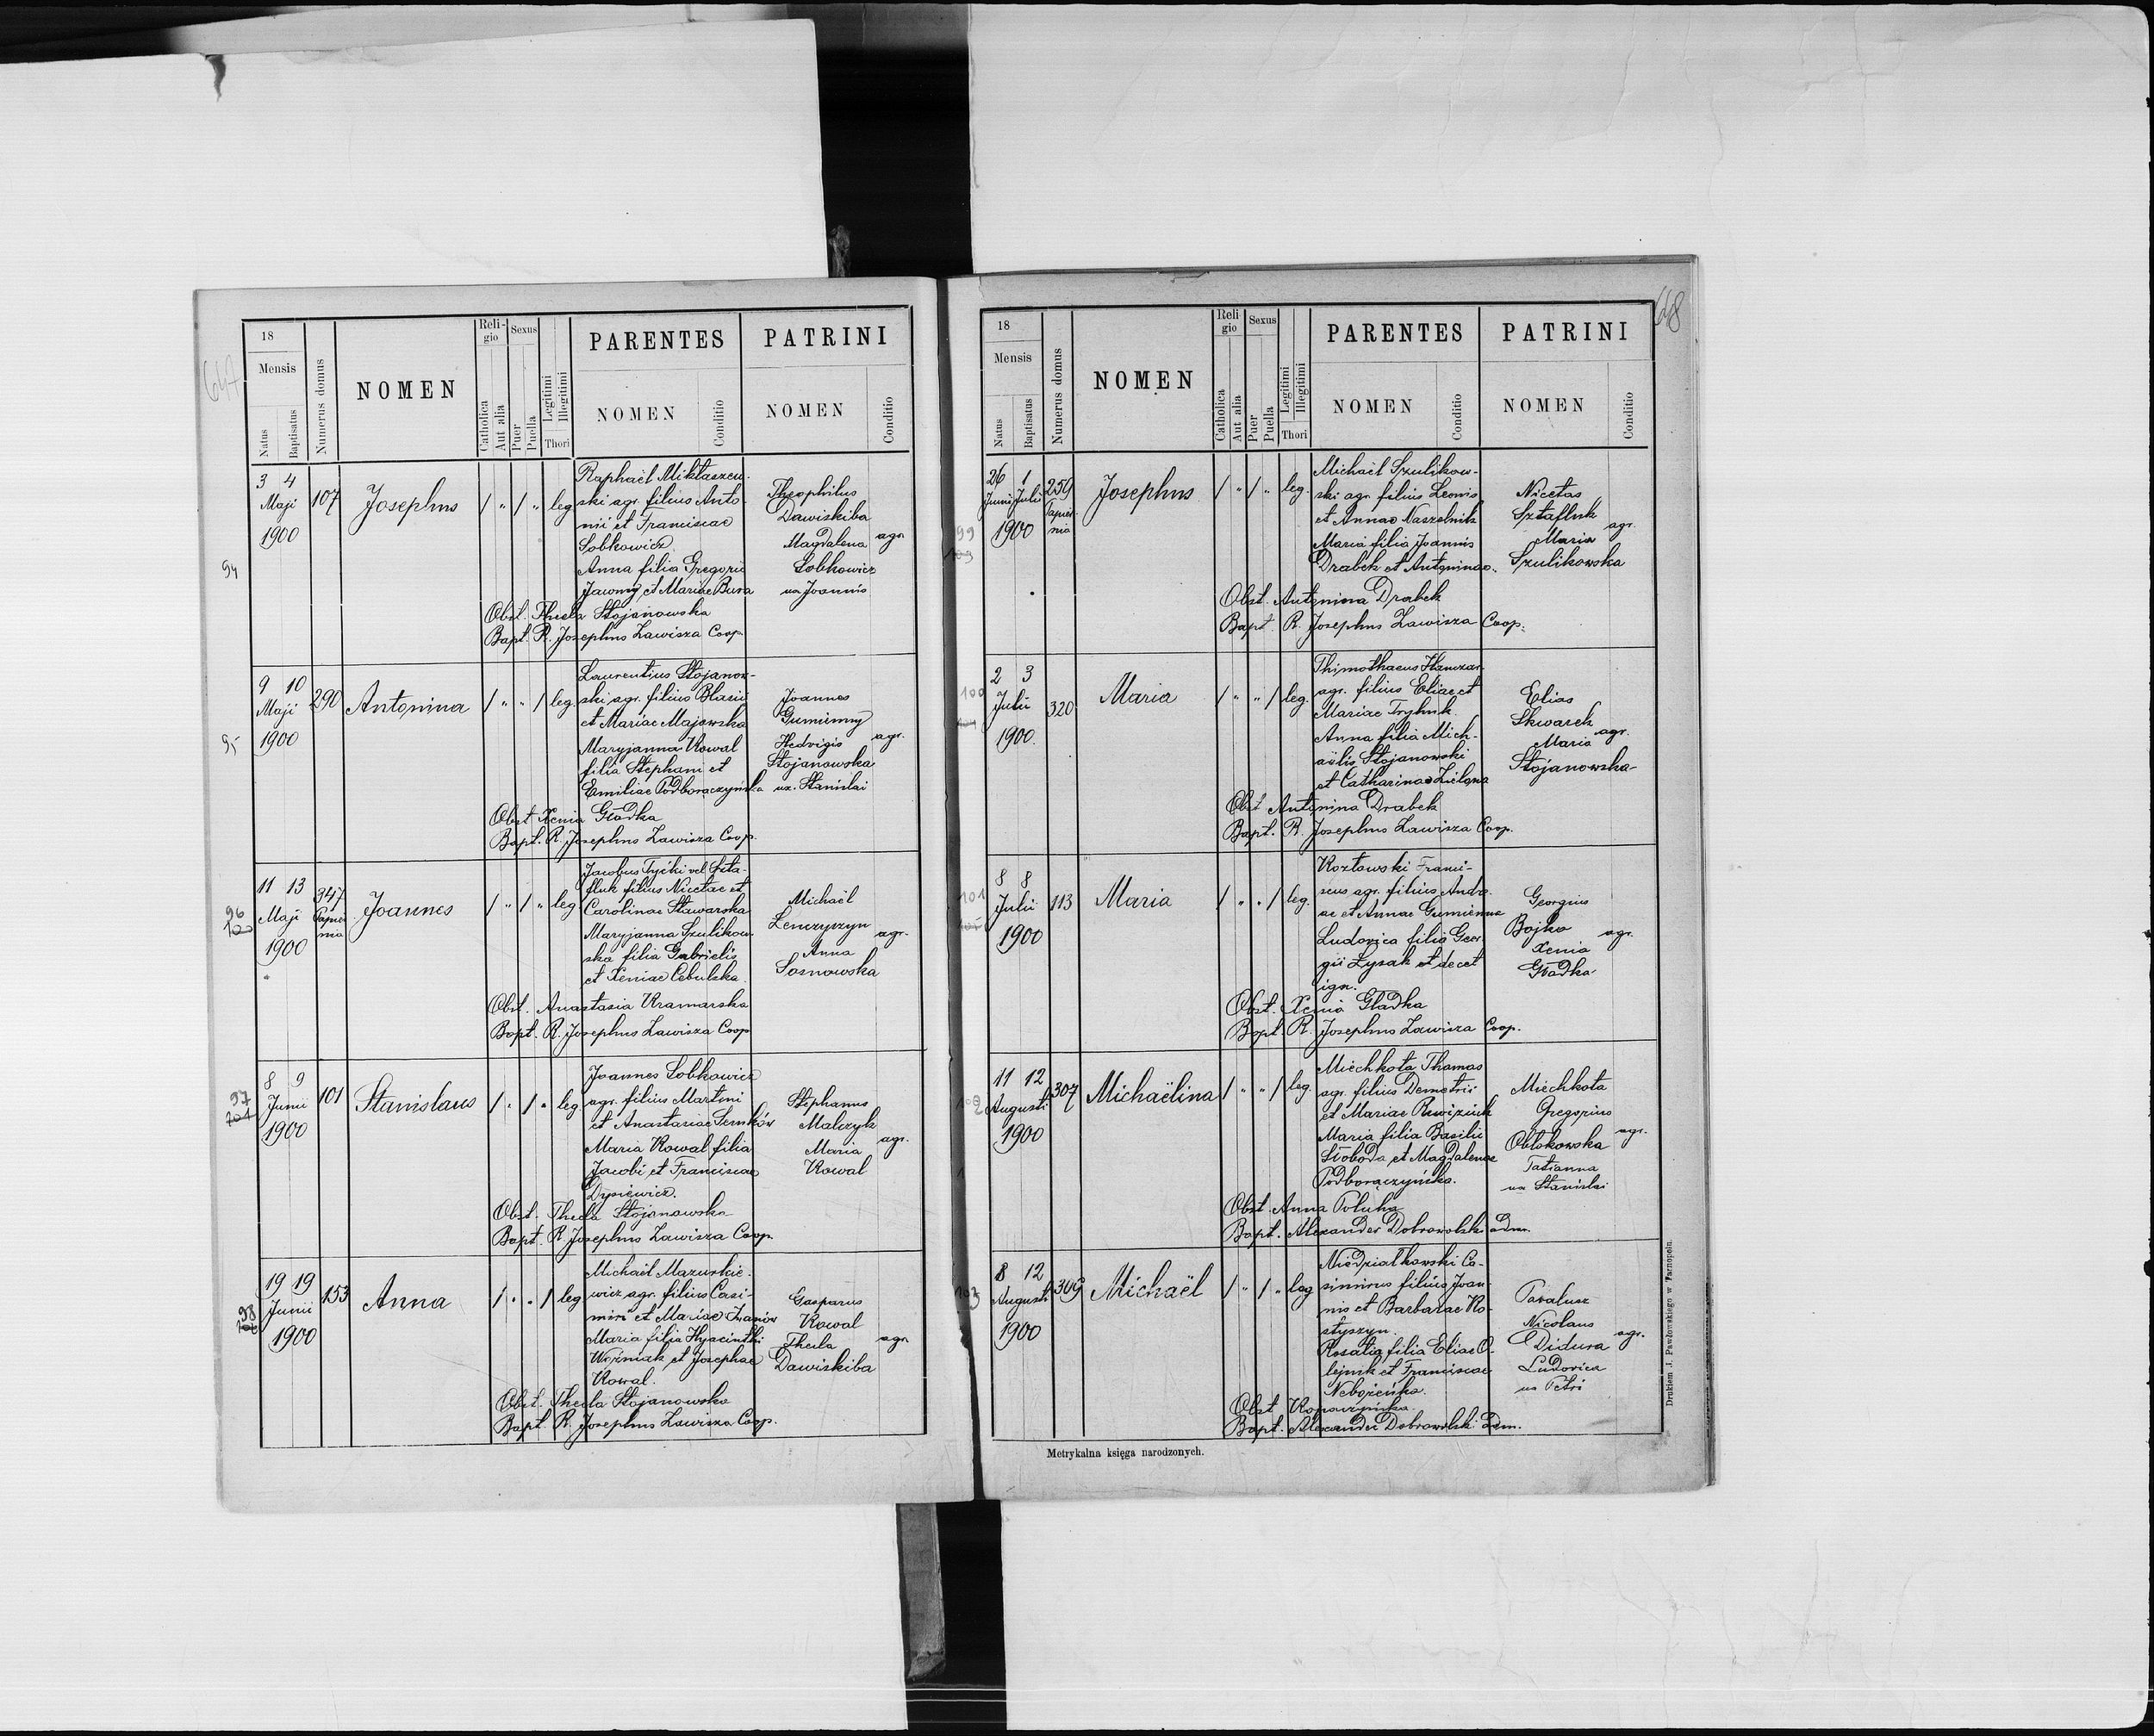 647
18
Mensis
Natus
Baptisatus
Numerus domus
NOMEN
Reli-
gio
Catholica
Aut alia
Sexus
Puer
Puella
Legitimi
Illegitimi
Thori
PARENTES
NOMEN
Conditio
PATRINI
NOMEN
Conditio
94
3 4
Maji
1900
107
Josephus
/ " / " leg
Raphaël Miktaszew-
ski agr. filius Anto-
nii et Franciscae
Sobkowicz.
Anna filia Gregorii
Jawny et Mariae Bura
Theophilus
Dawiskiba
Magdalena agr.
Sobkowicz
ux Joannis
Obst. Thecla Stojanowska
Bapt. R. Josephus Zawisza Coop.
95
9 10
Maji
1900
290
Antonina
/ " " / leg.
Laurentius Stojanow-
ski agr. filius Blasii
et Mariae Majewska
Maryjanna Kowal
filia Stephani et
Emiliae Podborączyńska
Joannes
Gumienny
Hedvigis agr.
Stojanowska
ux. Stanislai
Obst. Xenia Gładka
Bapt. R. Josephus Zawisza Coop.
96
11 13
Maji
1900
347
Papier
nia
Joannes
/ " / " leg
Jacobus Tycki vel Szta-
fluk filius Nicetae et
Carolinae Stawarska
Maryjanna Szulikow-
ska filia Gabrielis
et Xeniae Cebulska.
Michaël
Lenczyszyn
agr.
Anna
Sosnowska
Obst. Anastasia Kramarska
Bapt. R. Josephus Zawisza Coop
97
8 9
Junii
1900
101
Stanislaus
/ " / " leg
Joannes Sobkowicz
agr. filius Martini
et Anastasiae Semków
Maria Kowal filia
Jacobi et Franciscae
Dysiewicz.
Stephanus
Malczyk
Maria agr.
Kowal
Obst. Thecla Stojanowska
Bapt. R. Josephus Zawisza Coop.
98
19 19
Junii
1900
153
Anna
/ " " / leg
Michaël Mazurkie-
wicz agr. filius Casi-
miri et Mariae Iwanów
Maria filia Hyacinthi
Woźniak et Josephae
Kowal.
Gasparus
Kowal
Thecla agr.
Dawiskiba
Obst. Thecla Stojanowska
Bapt. R. Josephus Zawisza Coop.
648
18
Mensis
Natus
Baptisatus
Numerus domus
NOMEN
Reli
gio
Catholica
Aut alia
Sexus
Puer
Puella
Legitimi
Illegitimi
Thori
PARENTES
NOMEN
Conditio
PATRINI
NOMEN
Conditio
99
26 1
Junii Julii
1900
259
Papier
nia
Josephus
/ " / " leg.
Michaël Szulikow-
ski agr. filius Leonis
et Annae Naszelnik
Maria filia Joannis
Drabek et Antoninae
Nicetas
Sztafluk
agr.
Maria
Szulikowska
Obst. Antonina Drabek
Bapt. R. Josephus Zawisza Coop.
100
2 3
Julii
1900.
320
Maria
/ " " / leg.
Thimothaeus Hanczar
agr. filius Eliae et
Mariae Tryhuk
Anna filia Mich-
aëlis Stojanowski
et Catharinae Zielona
Elias
Skwarek
agr.
Maria
Stojanowska
Obst Antonina Drabek
Bapt. R. Josephus Zawisza Coop.
101
8 8
Julii
1900
113
Maria
/ " " / leg.
Kozłowski Franci-
scus agr. filius Andre-
ae et Annae Gumienna
Ludovica filia Geor-
gii Łysak et de cet
ign.
Georgius
Bojko agr.
Xenia
Gładka
Obst. Xenia Gładka
Bapt. R. Josephus Zawisza Coop.
102
11 12
Augusti
1900
307
Michaëlina
/ " " / leg.
Miechkota Thomas
agr. filius Demetrii
et Mariae Rewiziuk
Maria filia Basilii
Słoboda et Magdalenae
Podborączyńska.
Miechkota
Gregorius
agr.
Obłokowska
Tatianna
ux Stanislai
Obst. Anna Połuha
Bapt. Alexander Dobrowolski adm.
103
8 12
Augusti
1900
309
Michaël
/ " / " leg
Niedziałkowski Ca-
simirus filius Joan-
nis et Barbarae Ko-
styszyn.
Rosalia filia Eliae O-
lejnik et Franciscae
Nebożeńka.
Nicolaus
agr.
Didura
Ludovica
ux Petri
Obst Kopaczyńska.
Bapt. Alexander Dobrowolski adm.
Metrykalna księga narodzonych.
Drukiem J. Pawłowskiego w Tarnopolu.